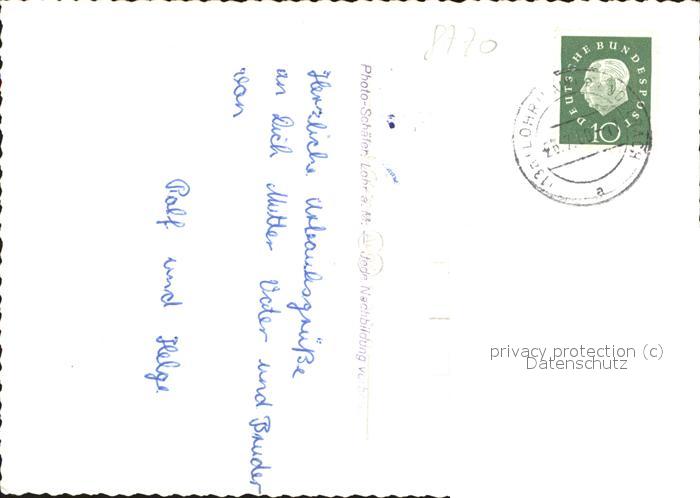 8770
DEUTSCHE BUNDESPOST
10
(13a) LOHR
a
Photo-Schäfer, Lohr a. M.
Jede Nachbildung
Herzliche Urlaubsgrüße
an Dich Mutter Vater und Bruder
von
Ralf und Helge
privacy protection (c)
Datenschutz